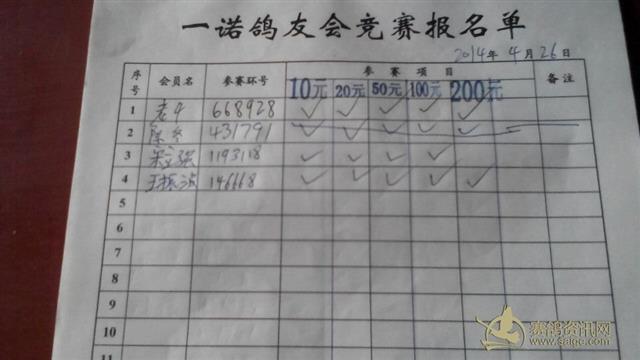 一诺鸽友会竞赛报名单
2014年4月26日
序号 会员名 参赛环号 参赛项目 备注
10元 20元 50元 100元 200元
1 老牛 668928 ✓ ✓ ✓ ✓ ✓
2 431791 ✓ ✓ ✓ ✓ ✓
3 1193118 ✓ ✓ ✓ ✓
4 146668 ✓ ✓ ✓ ✓ ✓
5
6
7
8
9
10
11
赛鸽资讯网
www.saige.com